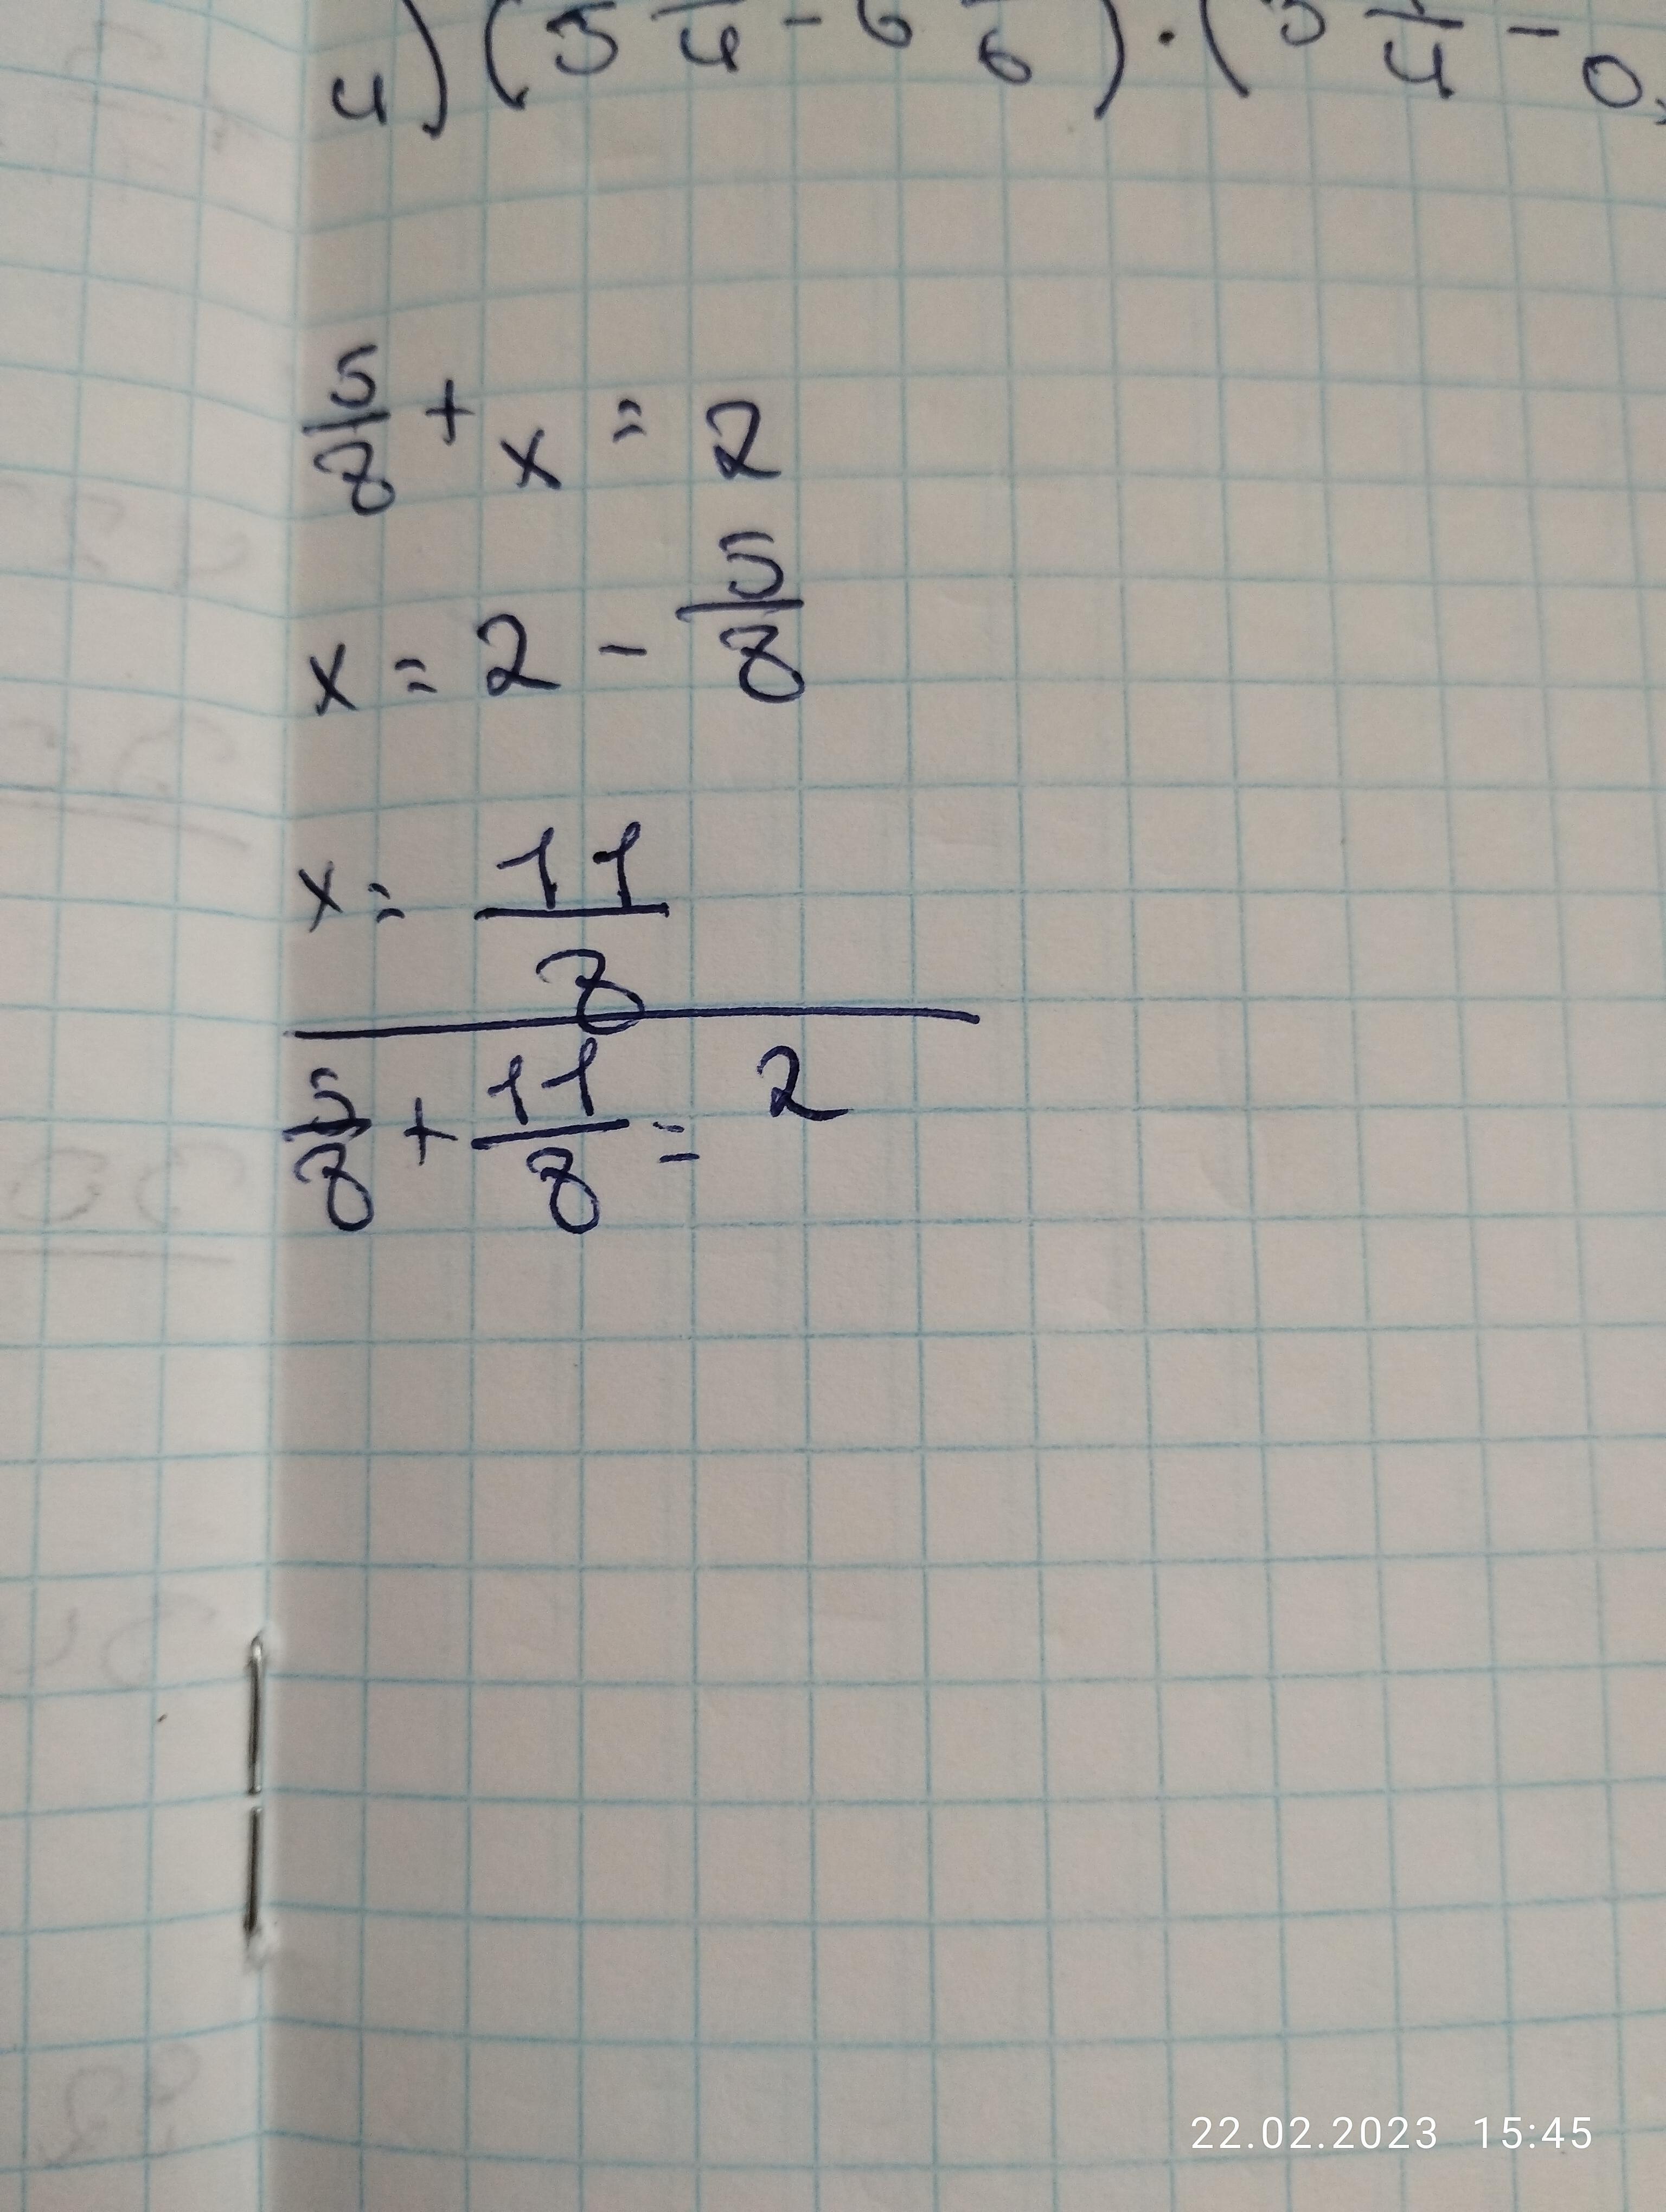 4) (5 /4 - 6 /6) · (3 /4 - 0,
5/8 + x = 2
x = 2 - 5/8
x = 11/8
5/8 + 11/8 = 2
22.02.2023 15:45